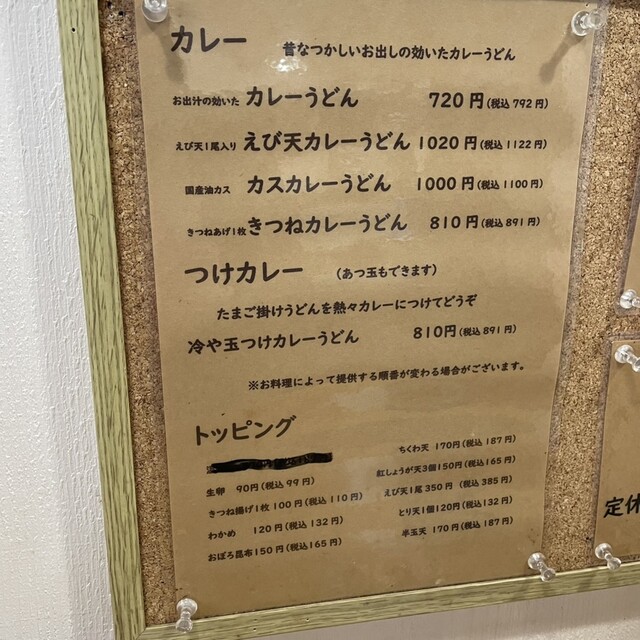 カレー 昔なつかしいお出しの効いたカレーうどん
お出汁の効いた カレーうどん 720円(税込 792円)
えび天1尾入り えび天カレーうどん 1020円(税込 1122円)
国産油カス カスカレーうどん 1000円(税込 1100円)
きつねあげ1枚 きつねカレーうどん 810円(税込 891円)
つけカレー (あつ玉もできます)
たまご掛けうどんを熱々カレーにつけてどうぞ
冷や玉つけカレーうどん 810円(税込 891円)
※お料理によって提供する順番が変わる場合がございます。
トッピング
生卵 90円(税込 99円)
きつね揚げ1枚 100円(税込 110円)
わかめ 120円(税込 132円)
おぼろ昆布 150円(税込 165円)
ちくわ天 170円(税込 187円)
紅しょうが天3個 150円(税込 165円)
えび天1尾 350円 (税込 385円)
とり天1個 120円(税込 132円)
半玉天 170円(税込 187円)
定休